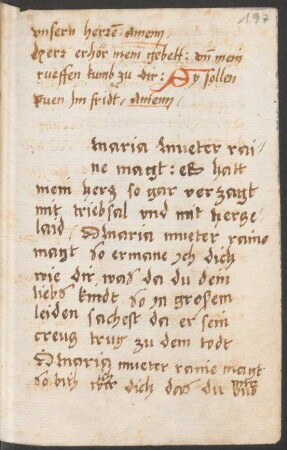 197
vnsern herzē amem
Herr erhör mein gebett: vn̄ mein
rueffen kumb zu dir: Sy sollen
ruen Im fridt / amem
maria mueter rai/
ne magt: Es hatt
mein herz so gar verzagt
mit triebsal vnd mit herze
laid / O maria mueter raine
magt so ermane ich dich
wie dir was da du dein
liebs kindt so in grosem
leiden sachest da er sein
creus trug zu dem todt
O maria mueter raine magt
so bith ich dich das du